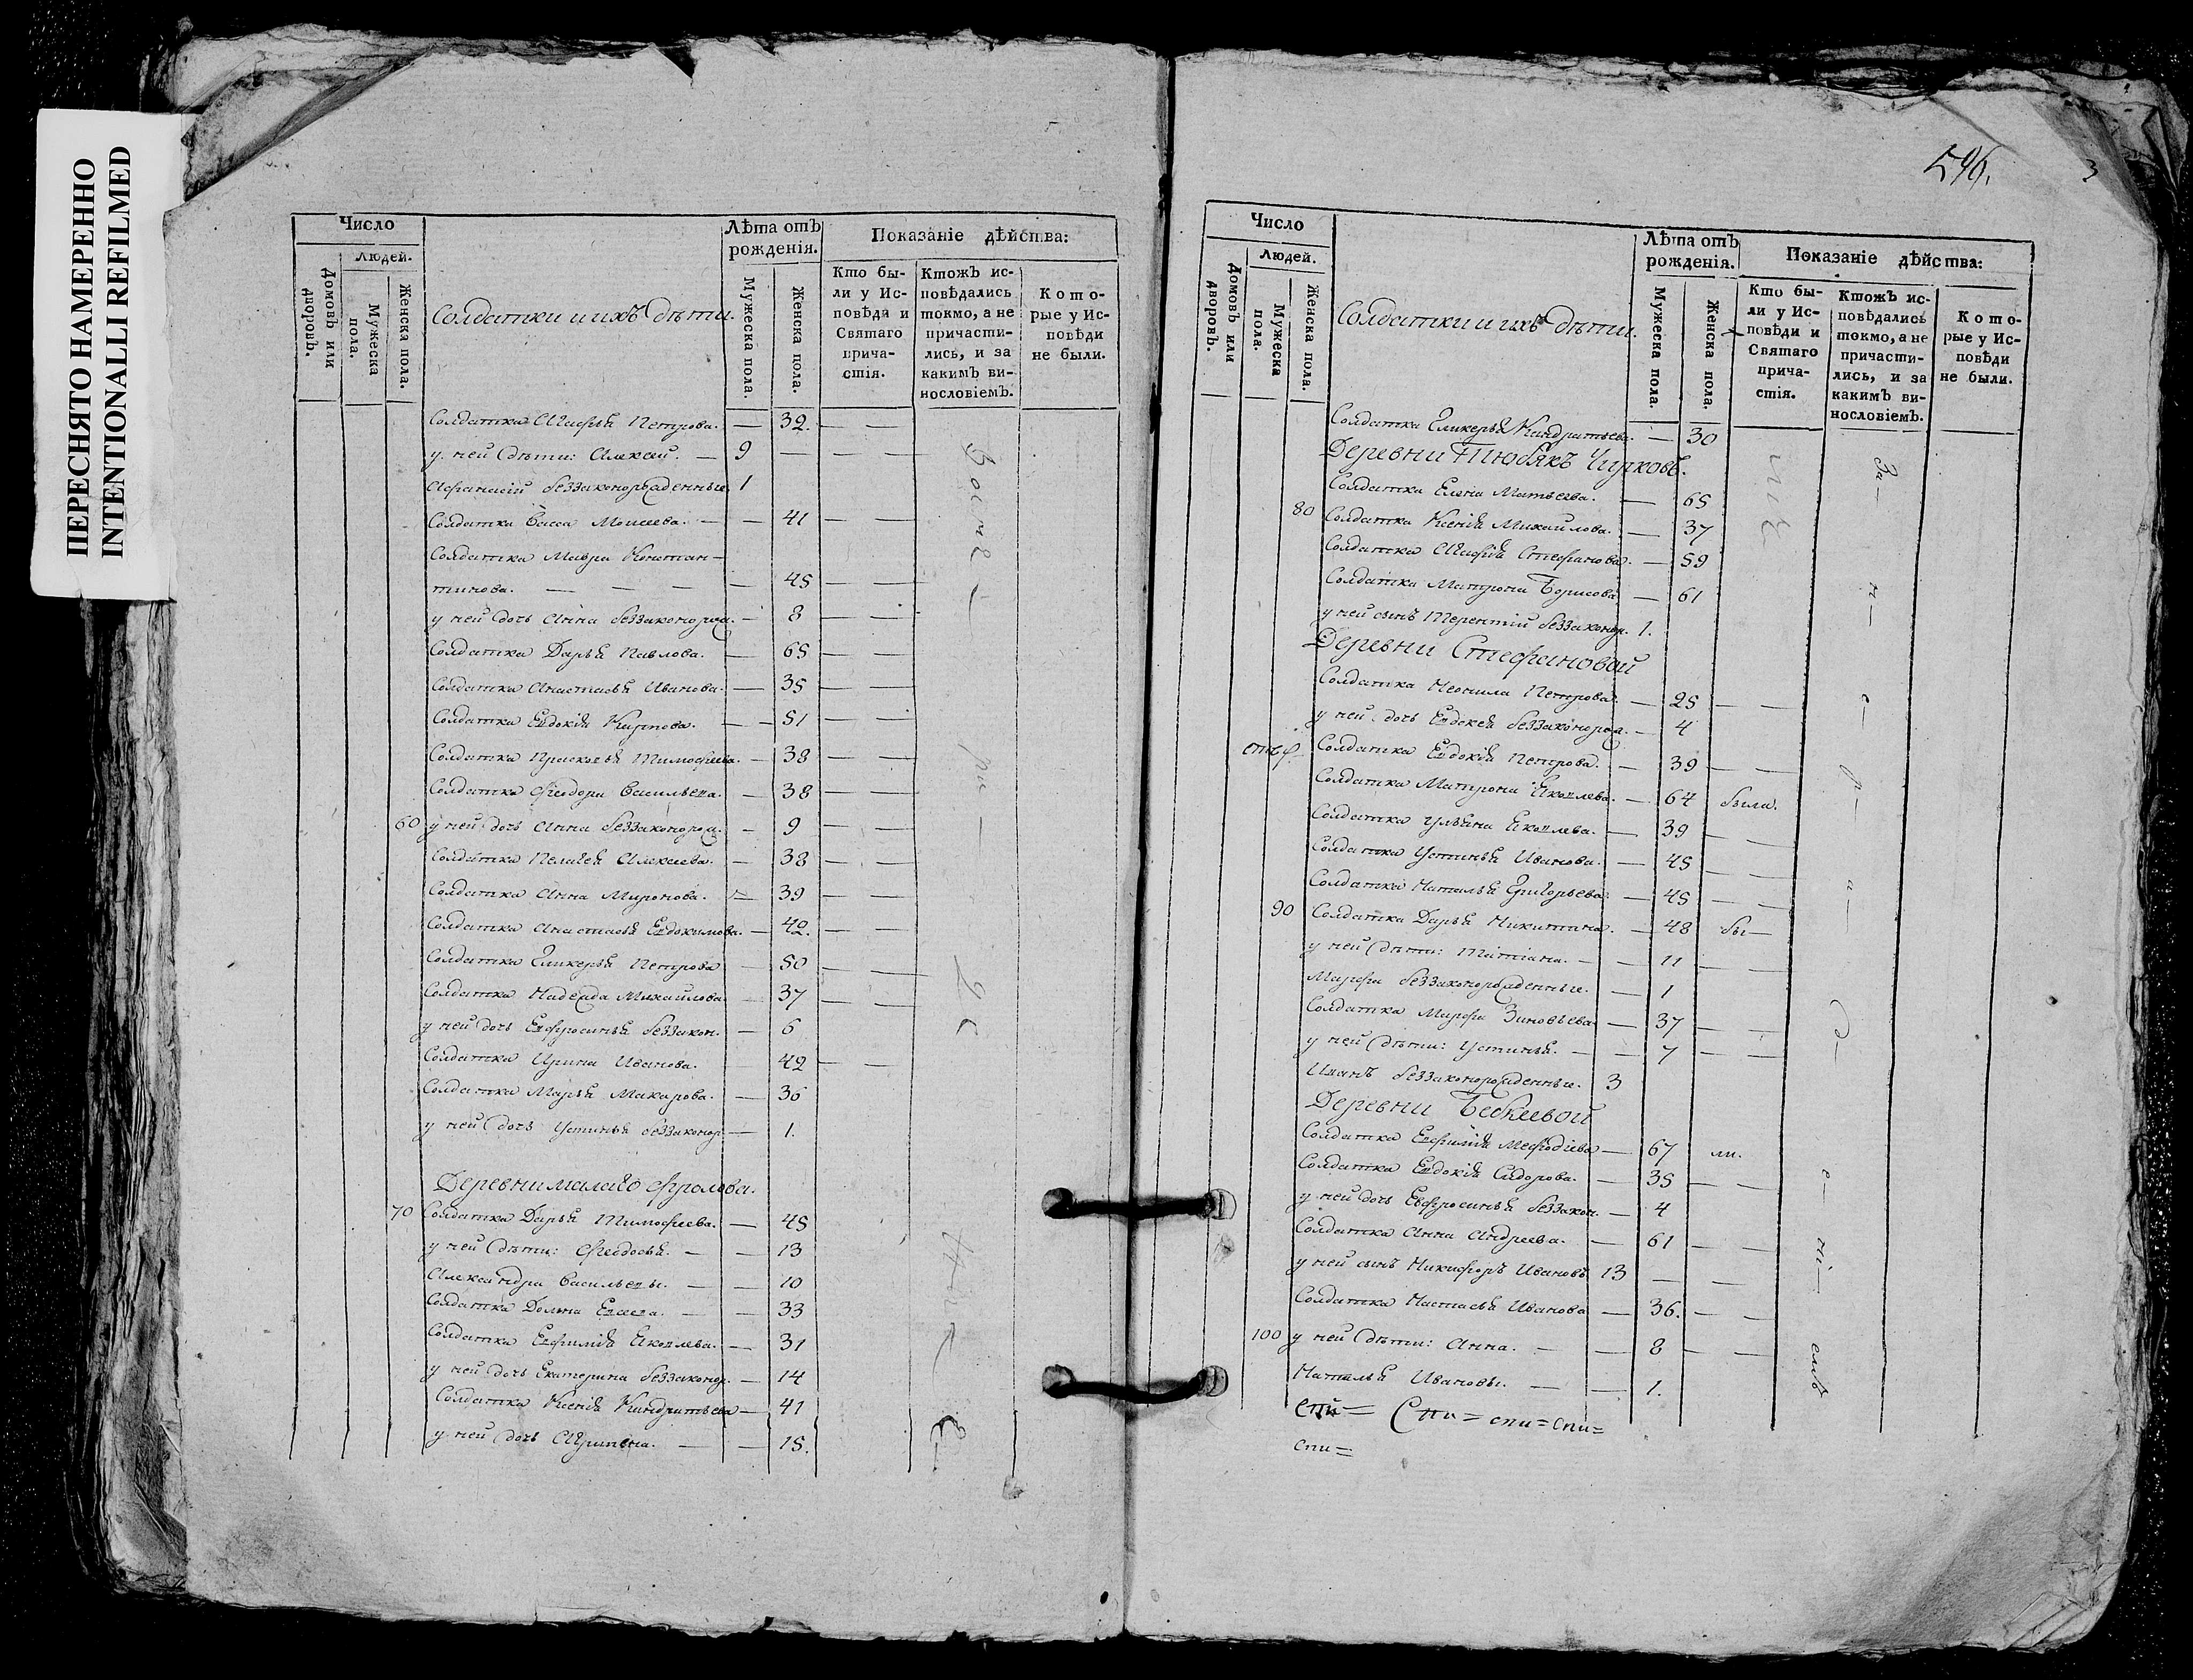 ПЕРЕСНЯТО НАМЕРЕННО
INTENTIONALLI REFILMED
Число
Людей.
Домовъ или дворовъ.
Мужеска пола.
Женска пола.
Солдатки и ихъ дѣти.
Лѣта отъ рожденія.
Мужеска пола.
Женска пола.
Показаніе дѣйства:
Кто были у Исповѣди и Святаго причастія.
Ктожъ исповѣдались токмо, а не причастились, и за какимъ винословіемъ.
Которые у Исповѣди не были.
Солдатка Агафья Петрова. — 32. — —
у ней дѣти: Алексей. — 9 — — —
Афанасій беззаконорожденные 1
Солдатка Васса Моисеева. — — 41 — —
Солдатка Мавра Констан-
тинова. — — — — 45 — —
у ней дочь Анна беззаконорож. — 8 — —
Солдатка Дарья Павлова. — 65 — —
Солдатка Анастасья Иванова. — 35 — —
Солдатка Евдокія Карпова. — — 51 — —
Солдатка Прасковья Тимофеева. — 38 — —
Солдатка Феодора Васильева. — 38 — —
60 у ней дочь Анна беззаконорож. — 9 — —
Солдатка Пелагея Алексеева. — 38 — —
Солдатка Анна Миронова. — 39 — —
Солдатка Анастасья Евдокимова. — 42. — —
Солдатка Гликерья Петрова — 50 — —
Солдатка Надежда Михайлова — 37 — —
у ней дочь Евфросинья беззакон. — 6
Солдатка Ирина Иванова. 42 — —
Солдатка Марья Макарова. — 36
у ней дочь Устинья беззаконор — 1.
Деревни малаго Фролова.
70 Солдатка Дарья Тимофеева. — 45
у ней дѣти: Феодосья. — — 13
Александра Васильевы. — — 10
Солдатка Домна Евсеева. — — 33
Солдатка Евфимія Яковлева. — 31
у ней дочь Екатерина беззаконор. — 14
Солдатка Ксенія Киндратьева — 41
у ней дочь Агрипена. — — 15.
596.
3
Число
Людей.
Домовъ или дворовъ.
Мужеска пола.
Женска пола.
Солдатки и ихъ дѣти.
Лѣта отъ рожденія.
Мужеска пола.
Женска пола.
Показаніе дѣйства:
Кто были у Исповѣди и Святаго причастія.
Ктожъ исповѣдались токмо, а не причастились, и за какимъ винословіемъ.
Которые у Исповѣди не были.
Солдатка Гликерья Киндратьева. — 30
Деревни Тюбякъ Чирковъ.
Солдатка Елена Матвеева. — 65
80 Солдатка Ксенія Михайлова. — 37
Солдатка Агафія Стефанова. — 59
Солдатка Матрона Борисова — 61
у ней сынъ Терентій беззаконор. 1.
Деревни Стефановой
Солдатка Неонила Петрова. — 25 — —
у ней дочь Евдокея беззаконорож. — 4
Солдатка Евдокія Петрова. — 39 — —
Солдатка Матрона Яковлева. — 64 была.
Солдатка Ульяна Яковлева. — 39 — —
Солдатка Устинья Иванова. — 45 — —
Солдатка Наталья Григорьева. — 45 — —
90 Солдатка Дарья Никитина. — 48 бы—
у ней дѣти: Татіана. — — 11 — —
Марфа беззаконорожденные. — 1
Солдатка Марфа Зиновьева — 37 — —
у ней дѣти: Устинья. — — 7 — —
Иванъ беззаконорожденные. 3
Деревни
Солдатка Евфимія Мефодіева — 67 ли.
Солдатка Евдокія Сидорова. — 35 — —
у ней дочь Евфросинья беззакон. — 4
Солдатка Анна Андреева. — 61 — —
у ней сынъ Никифоръ Ивановъ 13 — —
Солдатка Настасья Иванова — 36. — —
100 у ней дѣти: Анна. — — 8 — —
Наталья Ивановы. — — 1.
За— н— е— р— а— д— е— ні— емъ
Спи= Спи= спи= Спи=
спи=